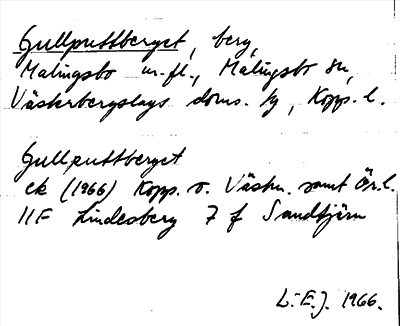 Gullputtberget, berg,
Malingsbo m.fl., Malingsbo sn,
Västerbergslags doms. hg, Kopps. l.
Gullputtberget
ek (1966) Kopp. o. Västm. samt Ör. l.
11F Lindesberg 7 f Sandtjärn
L.E.J. 1966.